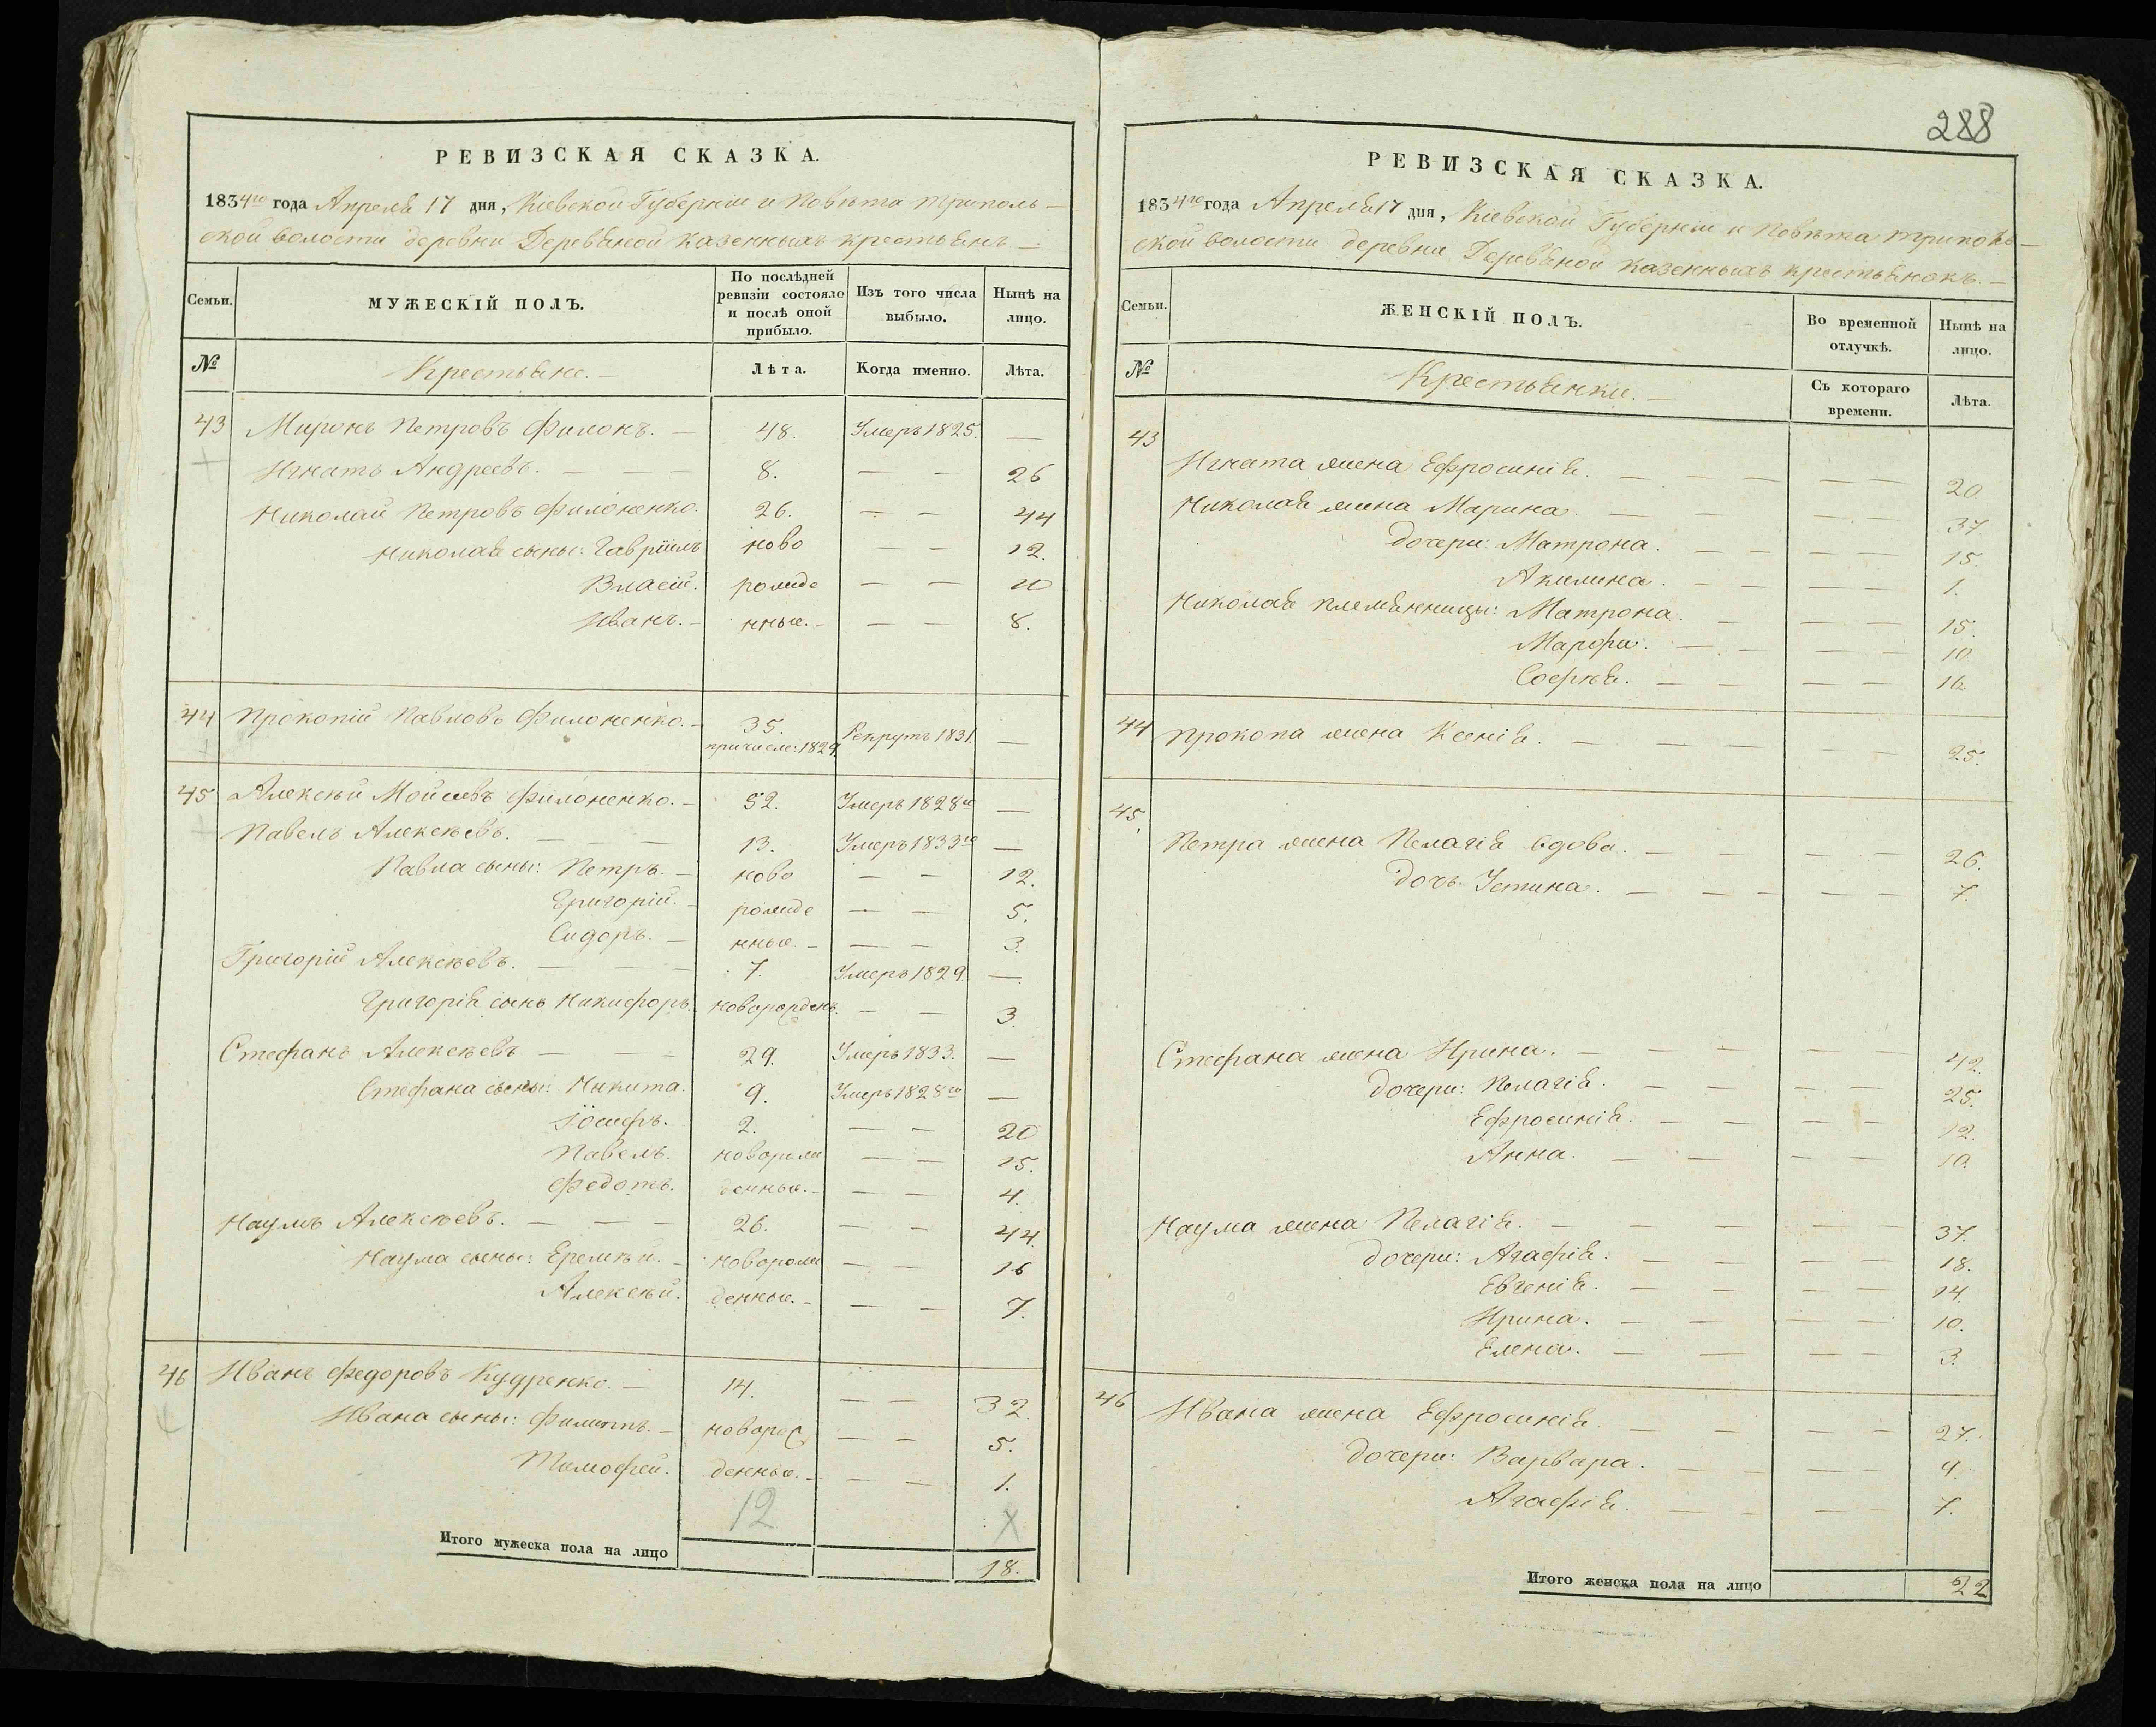 РЕВИЗСКАЯ СКАЗКА.
1834го года Апреля 17 дня, Кіевской Губерніи и Повѣта Триполь-
ской волости деревни Деревяной казенныхъ крестьянъ.—
Семьи. МУЖЕСКІЙ ПОЛЪ. По послѣдней ревизіи состояло и послѣ оной прибыло. Изъ того числа выбыло. Нынѣ на лицо.
№ Крестьяне.— Лѣта. Когда именно. Лѣта.
43 Миронъ Петровъ Филонъ. — 48. Умеръ 1825. —
Игнатъ Андреевъ. — — — 8. — — 26
Николай Петровъ Филоненко. 26. — — 44
Николая сыны: Гавріилъ ново — — 12.
Власій. рожде — — 10
Иванъ. — нные. — — — 8.
44 Прокопій Павловъ Филоненко. — 35. причисле: 1829. Рекрутъ 1831. —
45 Алексѣй Мойсеевъ Филоненко. — 52. Умеръ 1828го —
Павелъ Алексѣевъ. — — — 13. Умеръ 1833го —
Павла сыны: Петръ. — ново — — 12.
Григорій. — рожде — — 5.
Сидоръ. — нные. — — — 3.
Григорій Алексѣевъ. — — — 7. Умеръ 1829. —
Григорія сынъ Никифоръ. новорожденъ. — — 3.
Стефанъ Алексѣевъ — — — 29. Умеръ 1833. —
Стефана сыны: Никита. 9. Умеръ 1828го —
Іосифъ. 2. — — 20
Павелъ. новорож — — 15.
Федотъ. денные. — — — 4.
Наумъ Алексѣевъ. — — — 26. — — 44.
Наума сыны: Еремѣй. — новорож — — 16
Алексѣй. денные. — — — 7.
46 Иванъ Федоровъ Кудренко. — 14. — — 32.
Ивана сыны: Филиппъ. — новорож — — 5.
Тимофей. денные. — — — 1.
12 X
Итого мужеска пола на лицо 18.
288
РЕВИЗСКАЯ СКАЗКА.
1834го года Апреля 17 дня, Кіевской Губерніи и Повѣта Триполь-
ской волости деревни Деревяной казенныхъ крестьянокъ.—
Семьи. ЖЕНСКІЙ ПОЛЪ. Во временной отлучкѣ. Нынѣ на лицо.
№ Крестьянки.— Съ котораго времени. Лѣта.
43
Игната жена Ефросинія. — — — — — 20.
Николая жена Марина. — — — — — 37
Дочери: Матрона. — — — — — 15.
Акилина. — — — — 1.
Николая племянницы: Матрона. — — — 15.
Марфа. — — — — 10.
Софія. — — — — 16
44 Прокопа жена Ксенія. — — — — — 25.
45.
Петра жена Пелагія вдова. — — — — — 26.
Дочь Устина. — — — — — 7.
Стефана жена Ирина. — — — — 42.
Дочери: Пелагія. — — — — — 25.
Ефросинія. — — — — — 12.
Анна. — — — — — 10.
Наума жена Пелагія. — — — — — — 37.
Дочери: Агафія. — — — — — 18.
Евгенія. — — — — — 14.
Ирина. — — — — — 10.
Елена. — — — — — 3.
46 Ивана жена Ефросинія — — — — 27.
Дочери: Варвара. — — — — 9.
Агафія. — — — — 7.
Итого женска пола на лицо 22